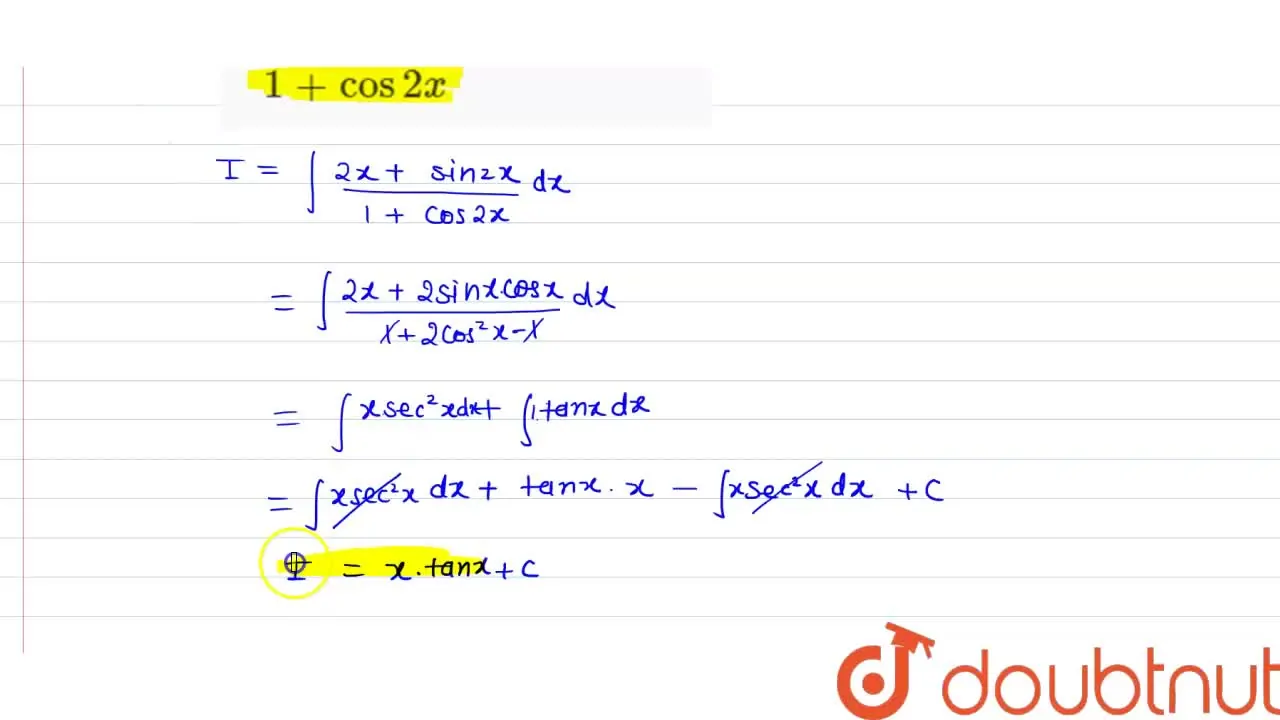 1 + cos 2x
I = ∫ (2x + sin2x)/(1 + cos2x) dx
= ∫ (2x + 2sinx.cosx)/(1 + 2cos²x − 1) dx
= ∫ x sec²x dx + ∫ 1.tanx dx
= ∫ x sec²x dx + tanx . x − ∫ x sec²x dx + C
I = x . tanx + C
doubtnut